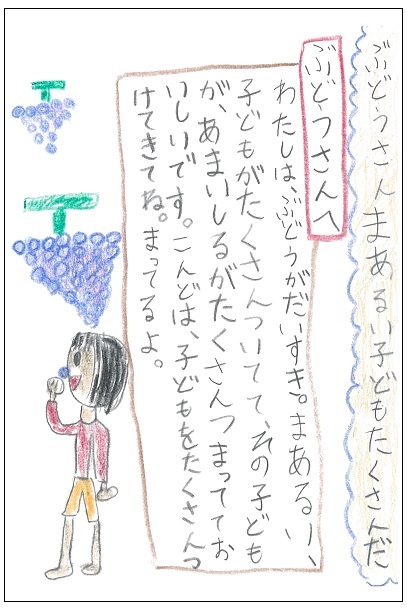 ぶどうさんまあるい子どもたくさんだ
ぶどうさんへ
わたしは、ぶどうがだいすき。まあるい、
子どもがたくさんついてて、その子ども
が、あまいしるがたくさんつまっててお
いしいです。こんどは、子どもをたくさんつ
けてきてね。まってるよ。